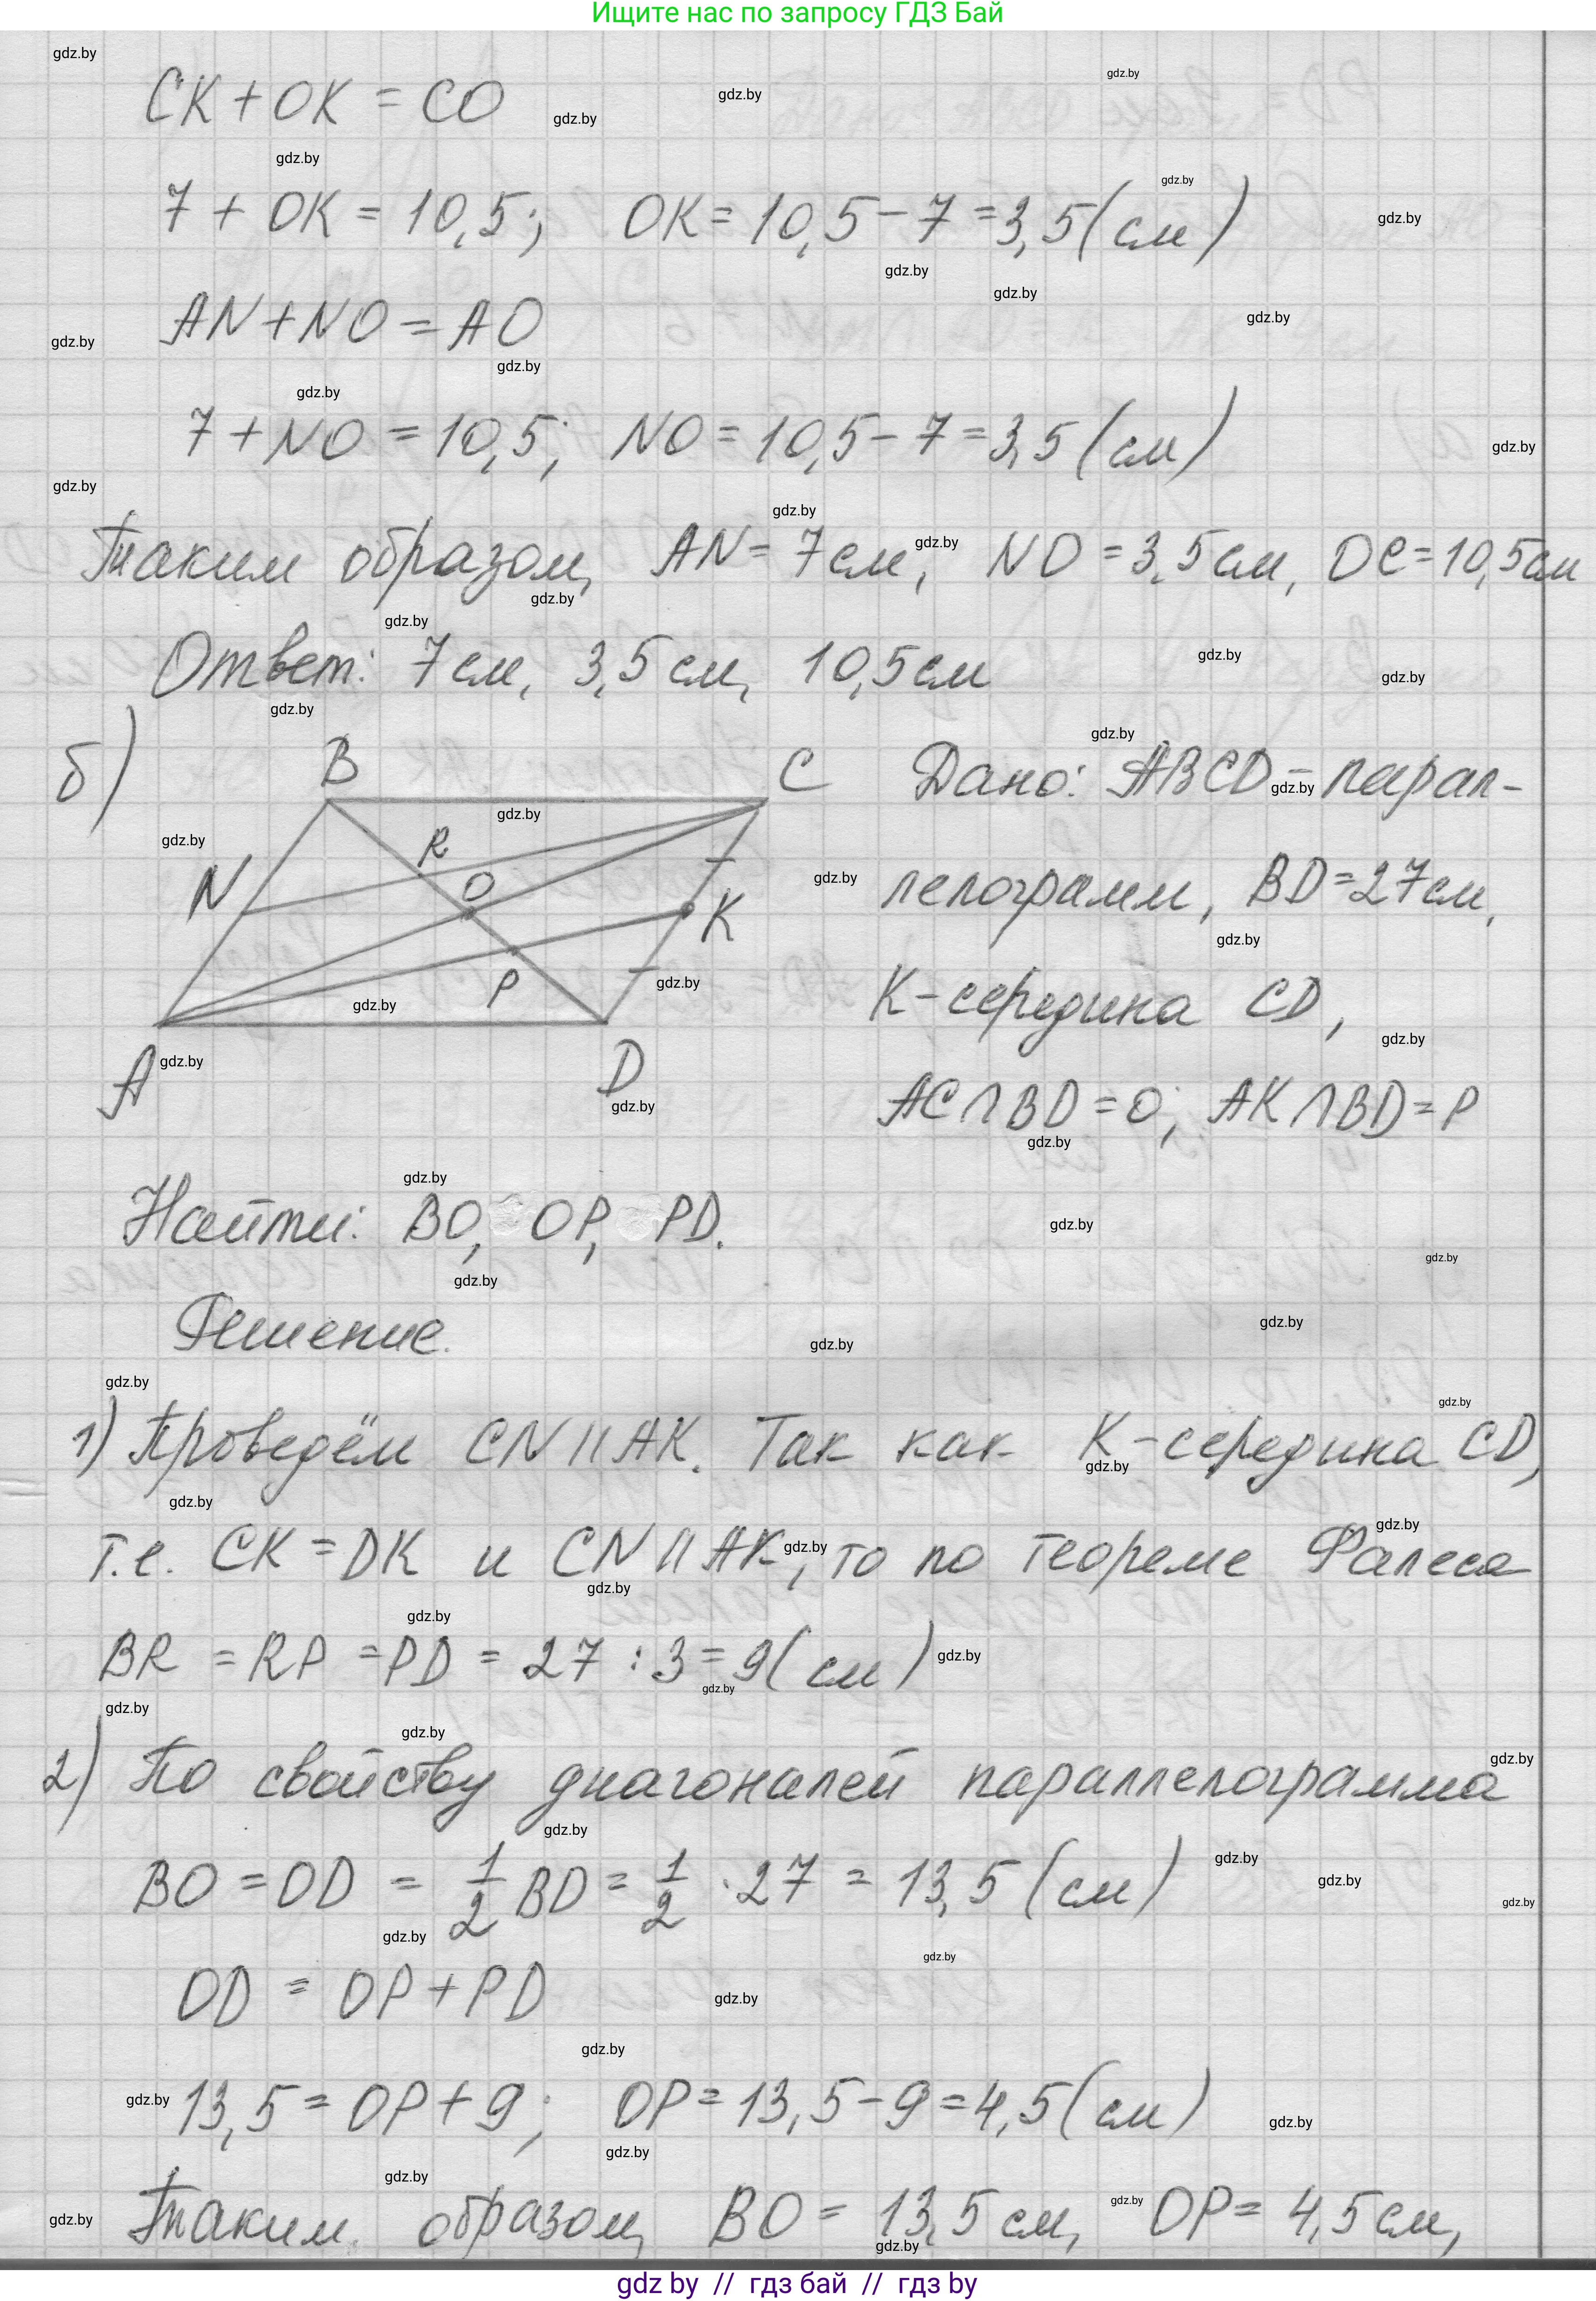 Ищите нас по запросу ГДЗ Бай
CK + OK = CO
7 + OK = 10,5; OK = 10,5 - 7 = 3,5 (см)
AN + NO = AO
7 + NO = 10,5; NO = 10,5 - 7 = 3,5 (см)
Таким образом, AN = 7 см, NO = 3,5 см, OC = 10,5 см
Ответ: 7 см, 3,5 см, 10,5 см
б) B C Дано: ABCD - парал-
R
N O K лелограмм, BD = 27 см,
P K - середина CD,
A D AC ∩ BD = O; AK ∩ BD = P
Найти: BO, OP, PD.
Решение.
1) Проведём CN || AK. Так как K - середина CD,
т.е. CK = DK и CN || AK, то по теореме Фалеса
BR = RP = PD = 27 : 3 = 9 (см)
2) По свойству диагоналей параллелограмма
BO = OD = 1/2 BD = 1/2 · 27 = 13,5 (см)
OD = OP + PD
13,5 = OP + 9; OP = 13,5 - 9 = 4,5 (см)
Таким образом, BO = 13,5 см, OP = 4,5 см,
gdz by // гдз бай // гдз by